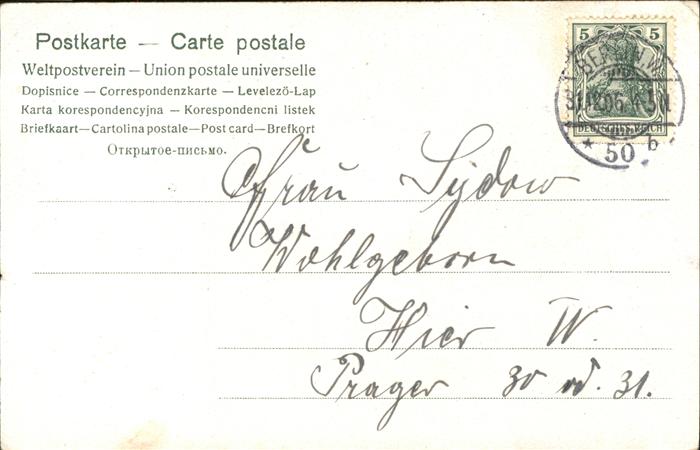 Postkarte — Carte postale
Weltpostverein – Union postale universelle
Dopisnice – Correspondenzkarte – Levelező-Lap
Karta korespondencyjna – Korespondencni listek
Briefkaart – Cartolina postale – Post card – Brefkort
Открытое-письмо.
5 5
DEUTSCHES REICH
BERLIN W.
31.12.06. 4-5 N.
* 50 b
Frau Sydow
Wohlgeborn
Hier W.
Prager 30 od. 31.